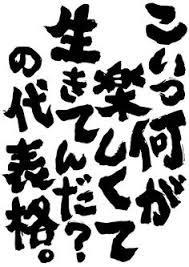 こいつ何が
楽しくて
生きてんだ?
の代表格。